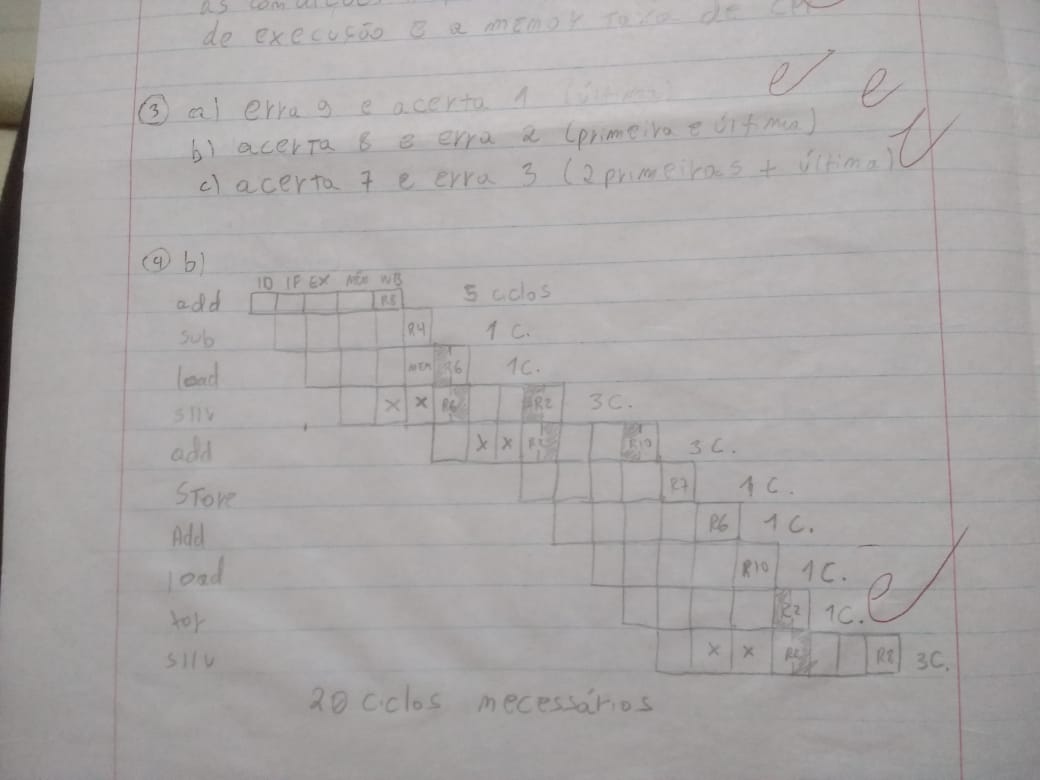 de execução e a memor taxa de
③ a) erra 9 e acerta 1 (última)
b) acerta 8 e erra 2 (primeira e última)
c) acerta 7 e erra 3 (2 primeiras + última)
④ b)
ID IF EX MEM WB
add R8 5 ciclos
sub R4 1 C.
load MEM R6 1C.
sllv X X R6 R2 3C.
add X X R2 R10 3C.
STore R7 1 C.
Add R6 1 C.
load R10 1C.
xor R2 1C.
sllv X X R2 R8 3C.
20 ciclos necessários